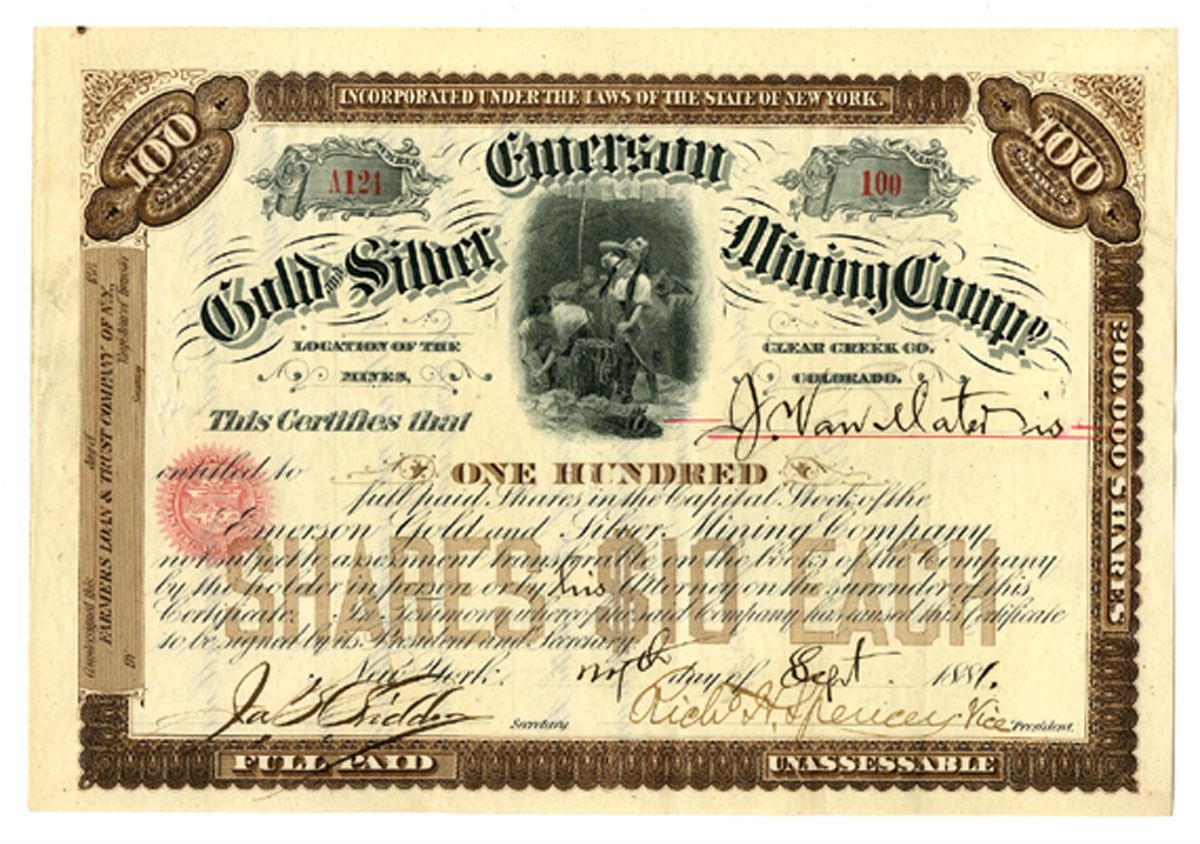 INCORPORATED UNDER THE LAWS OF THE STATE OF NEW YORK.
100
100
NUMBER
A121
Emerson
NUMBER
100
Gold and Silver
Mining Compy.
LOCATION OF THE
MINES,
CLEAR CREEK CO.
COLORADO.
This Certifies that
J. Van Mater is
entitled to
ONE HUNDRED
full paid Shares in the Capital Stock of the
Emerson Gold and Silver Mining Company
not subject to assessment transferable on the books of the Company
by the holder in person or by his Attorney on the surrender of this
Certificate. In Testimony whereof the said Company has caused this Certificate
to be signed by its President and Secretary
SHARES $10 EACH
New York, day of Sept. 1881.
Secretary
Richd H. Spencer Vice President.
FULL PAID
UNASSESSABLE
Countersigned this day of 188
FARMERS LOAN & TRUST COMPANY OF N.Y.,
By Secretary
200,000 SHARES